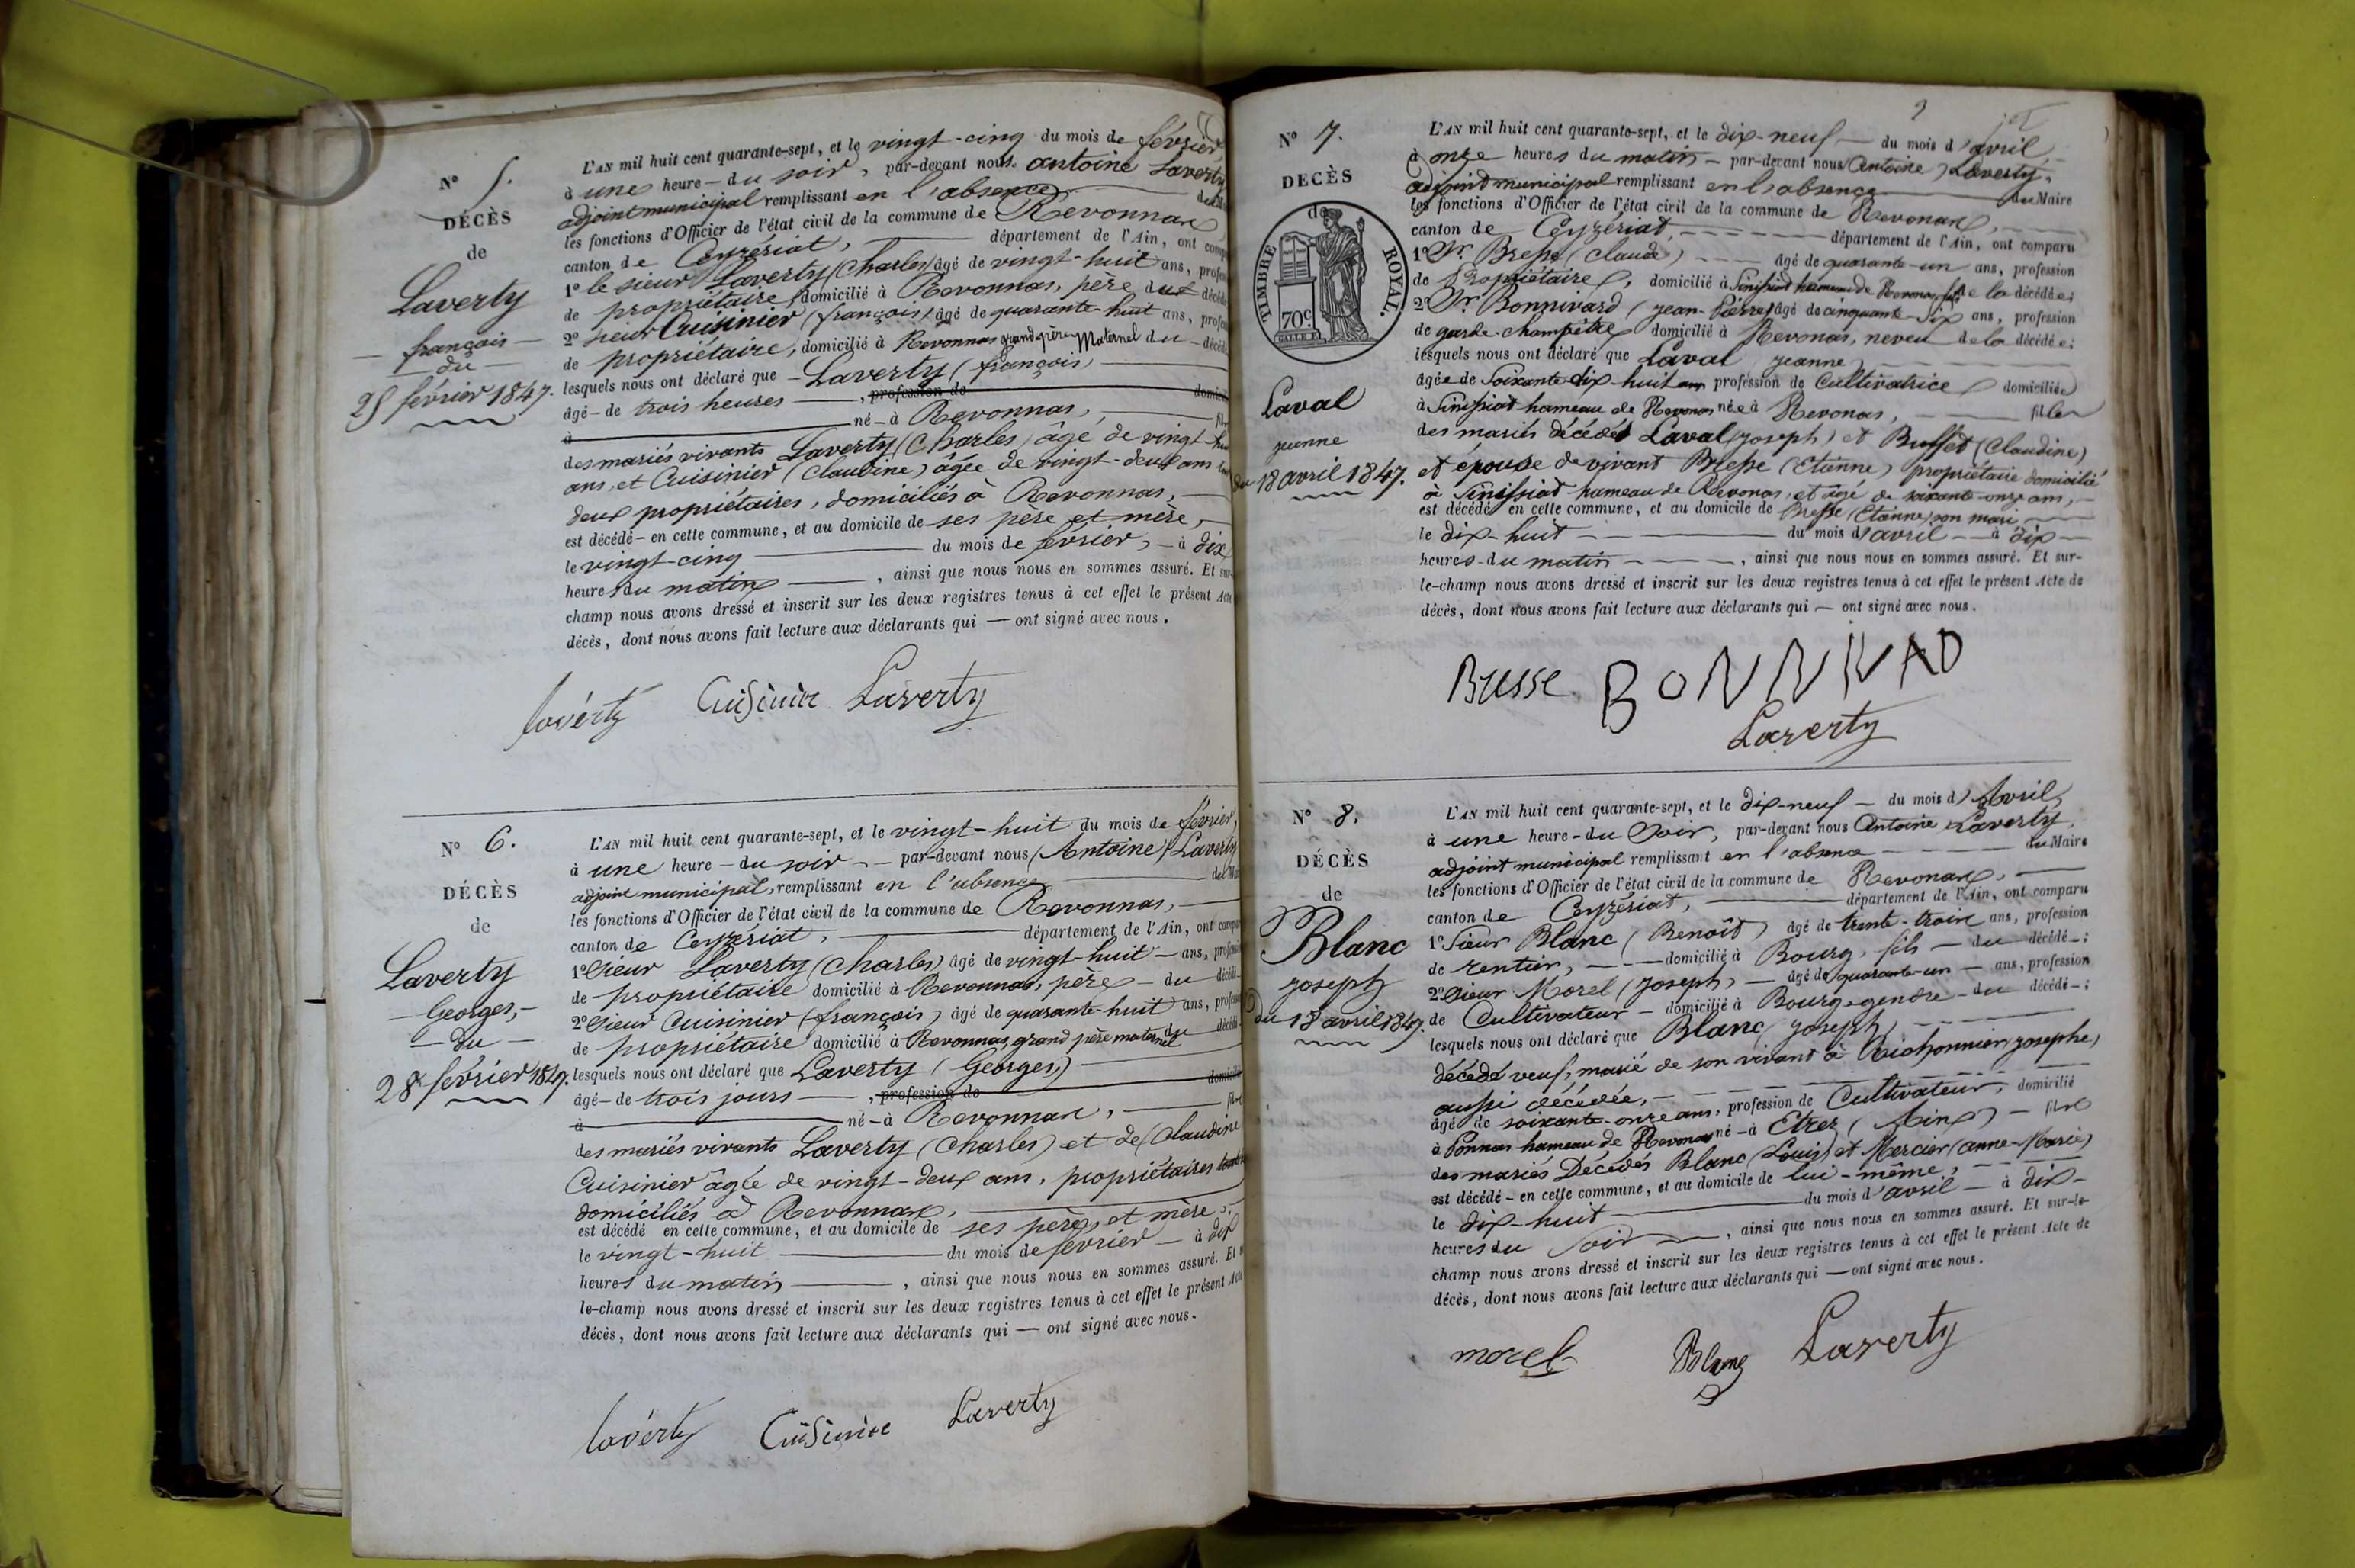 N° 5.
DÉCÈS
de
Laverty
— françois —
— du —
25 février 1847.
L'AN mil huit cent quarante-sept, et le vingt-cinq du mois de février,
à une heure — du soir, par-devant nous antoine Laverty
adjoint municipal remplissant en l'absence du
les fonctions d'Officier de l'état civil de la commune de Revonnas
canton de Ceyzériat, département de l'Ain, ont
1° le sieur Laverty (Charles) âgé de vingt-huit ans,
de propriétaire, domicilié à Revonnas, père du
2° sieur Cuisinier (françois) âgé de quarante-huit ans,
de propriétaire, domicilié à Revonnas grand père Maternel du —
lesquels nous ont déclaré que — Laverty (françois)
âgé — de trois heures —, profession de
à né — à Revonnas,
des mariés vivants Laverty (Charles) âgé de vingt-
ans, et Cuisinier (Claudine) âgée de vingt-deux ans
deux propriétaires, domiciliés à Revonnas, —
est décédé — en cette commune, et au domicile de ses père et mère, —
le vingt-cinq — du mois de février, — à dix
heures du matin —, ainsi que nous nous en sommes assuré. Et sur-
champ nous avons dressé et inscrit sur les deux registres tenus à cet effet le présent Acte
décès, dont nous avons fait lecture aux déclarants qui — ont signé avec nous.
lavérty Cuisinier Laverty
N° 6.
DÉCÈS
de
Laverty
— Georges, —
— du —
28 février 1847.
L'AN mil huit cent quarante-sept, et le vingt-huit du mois de février,
à une heure — du soir — par-devant nous (Antoine) Laverty
adjoint municipal, remplissant en l'absence
les fonctions d'Officier de l'état civil de la commune de Revonnas, —
canton de Ceyzériat, — département de l'Ain, ont
1° Sieur Laverty (Charles) âgé de vingt-huit — ans,
de propriétaire domicilié à Revonnas, père — du
2° Sieur Cuisinier (françois) âgé de quarante-huit ans,
de propriétaire domicilié à Revonnas, grand père maternel du
lesquels nous ont déclaré que Laverty (Georges) —
âgé — de trois jours —, profession de
à né — à Revonnas, —
des mariés vivants Laverty (Charles) et de (Claudine
Cuisinier âgée de vingt-deux ans, propriétaires
domiciliés à Revonnas, —
est décédé en cette commune, et au domicile de ses père et mère,
le vingt-huit — du mois de février — à dix
heures du matin —, ainsi que nous nous en sommes assuré. Et
le-champ nous avons dressé et inscrit sur les deux registres tenus à cet effet le présent
décès, dont nous avons fait lecture aux déclarants qui — ont signé avec nous.
lavérty Cuisinier Laverty
N° 7.
DECÈS
de
TIMBRE ROYAL.
70c
Laval
jeanne
du 18 avril 1847.
L'AN mil huit cent quarante-sept, et le dix-neuf — du mois d'avril,
à onze heures du matin — par-devant nous (Antoine) Laverty,
adjoint municipal remplissant en l'absence du Maire
les fonctions d'Officier de l'état civil de la commune de Revonas,
canton de Ceyzériat, département de l'Ain, ont comparu
1° Sr. Bresse (claude) âgé de quarante-un ans, profession
de Propriétaire, domicilié à Sénissiat hameau de Revonas, fils de la décédée;
2° Sr. Bonnivard (jean-Pierre) âgé de cinquante-six ans, profession
de garde-champêtre domicilié à Revonas, neveu de la décédée;
lesquels nous ont déclaré que Laval jeanne
âgée de Soixante-dix-huit ans profession de Cultivatrice domiciliée
à Sénissiat hameau de Revonas née à Revonas, — fille
des mariés décédés Laval (joseph) et Buffet (Claudine)
et épouse de vivant Bresse (Etienne) propriétaire domicilié
à Sénissiat hameau de Revonas, et âgé de soixante-onze ans, —
est décédé en cette commune, et au domicile de Bresse (Etienne) son mari —
le dix-huit — du mois d'avril — à dix —
heures — du matin —, ainsi que nous nous en sommes assuré. Et sur-
le-champ nous avons dressé et inscrit sur les deux registres tenus à cet effet le présent Acte de
décès, dont nous avons fait lecture aux déclarants qui — ont signé avec nous.
Bresse BONNIVAD
Laverty
N° 8.
DÉCÈS
de
Blanc
joseph
du 18 avril 1847.
L'AN mil huit cent quarante-sept, et le dix-neuf — du mois d'Avril,
à une heure — du Soir, par-devant nous Antoine Laverty,
adjoint municipal remplissant en l'absence — du Maire
les fonctions d'Officier de l'état civil de la commune de Revonas, —
canton de Ceyzériat, — département de l'Ain, ont comparu
1° Sieur Blanc (Benoît) âgé de trente-trois ans, profession
de rentier, — domicilié à Bourg, fils — du décédé —;
2° Sieur Morel (joseph) — âgé de quarante-un — ans, profession
de Cultivateur — domicilié à Bourg, gendre — du décédé —;
lesquels nous ont déclaré que Blanc joseph
décédé veuf, marié de son vivant à Bichonnier josephe,
aussi décédée, —
âgé de soixante-onze ans, profession de Cultivateur, domicilié
à Sonnas hameau de Revonas né — à Etrez (Ain) — fils
des mariés Décédés Blanc (Louis) et Mercier (anne-Marie)
est décédé — en cette commune, et au domicile de lui-même,
le dix-huit — du mois d'avril — à dix —
heures du Soir —, ainsi que nous nous en sommes assuré. Et sur-le-
champ nous avons dressé et inscrit sur les deux registres tenus à cet effet le présent Acte de
décès, dont nous avons fait lecture aux déclarants qui — ont signé avec nous.
morel Blanc Laverty